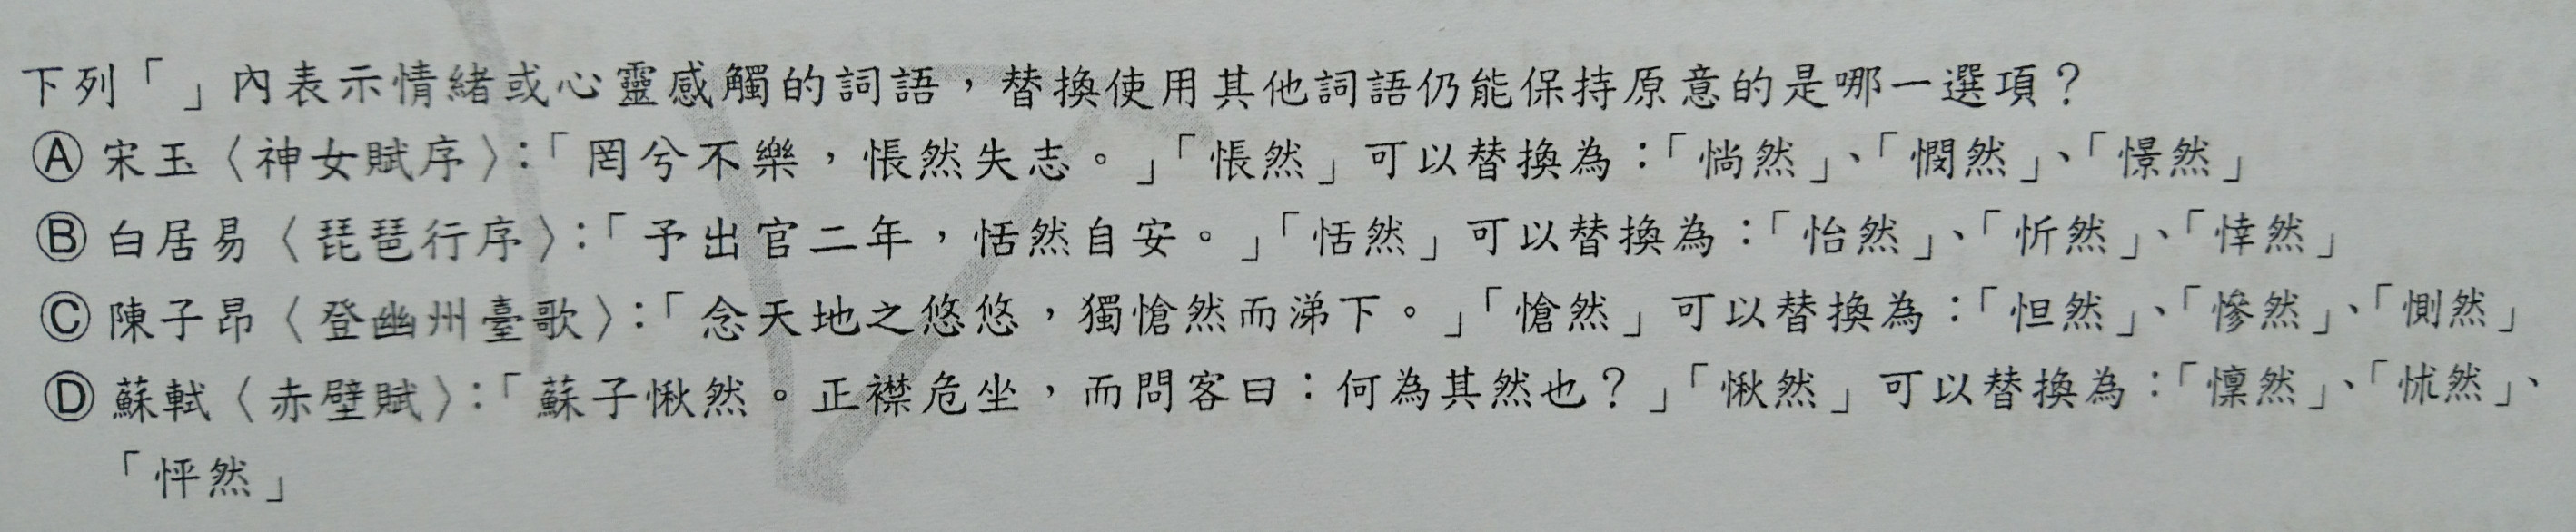 下列「」內表示情緒或心靈感觸的詞語，替換使用其他詞語仍能保持原意的是哪一選項？
Ⓐ宋玉〈神女賦序〉：「罔兮不樂，悵然失志。」「悵然」可以替換為：「惝然」、「憫然」、「憬然」
Ⓑ白居易〈琵琶行序〉：「予出官二年，恬然自安。」「恬然」可以替換為：「怡然」、「忻然」、「悻然」
Ⓒ陳子昂〈登幽州臺歌〉：「念天地之悠悠，獨愴然而涕下。」「愴然」可以替換為：「怛然」、「慘然」、「惻然」
Ⓓ蘇軾〈赤壁賦〉：「蘇子愀然。正襟危坐，而問客曰：何為其然也？」「愀然」可以替換為：「懍然」、「怵然」、
「怦然」